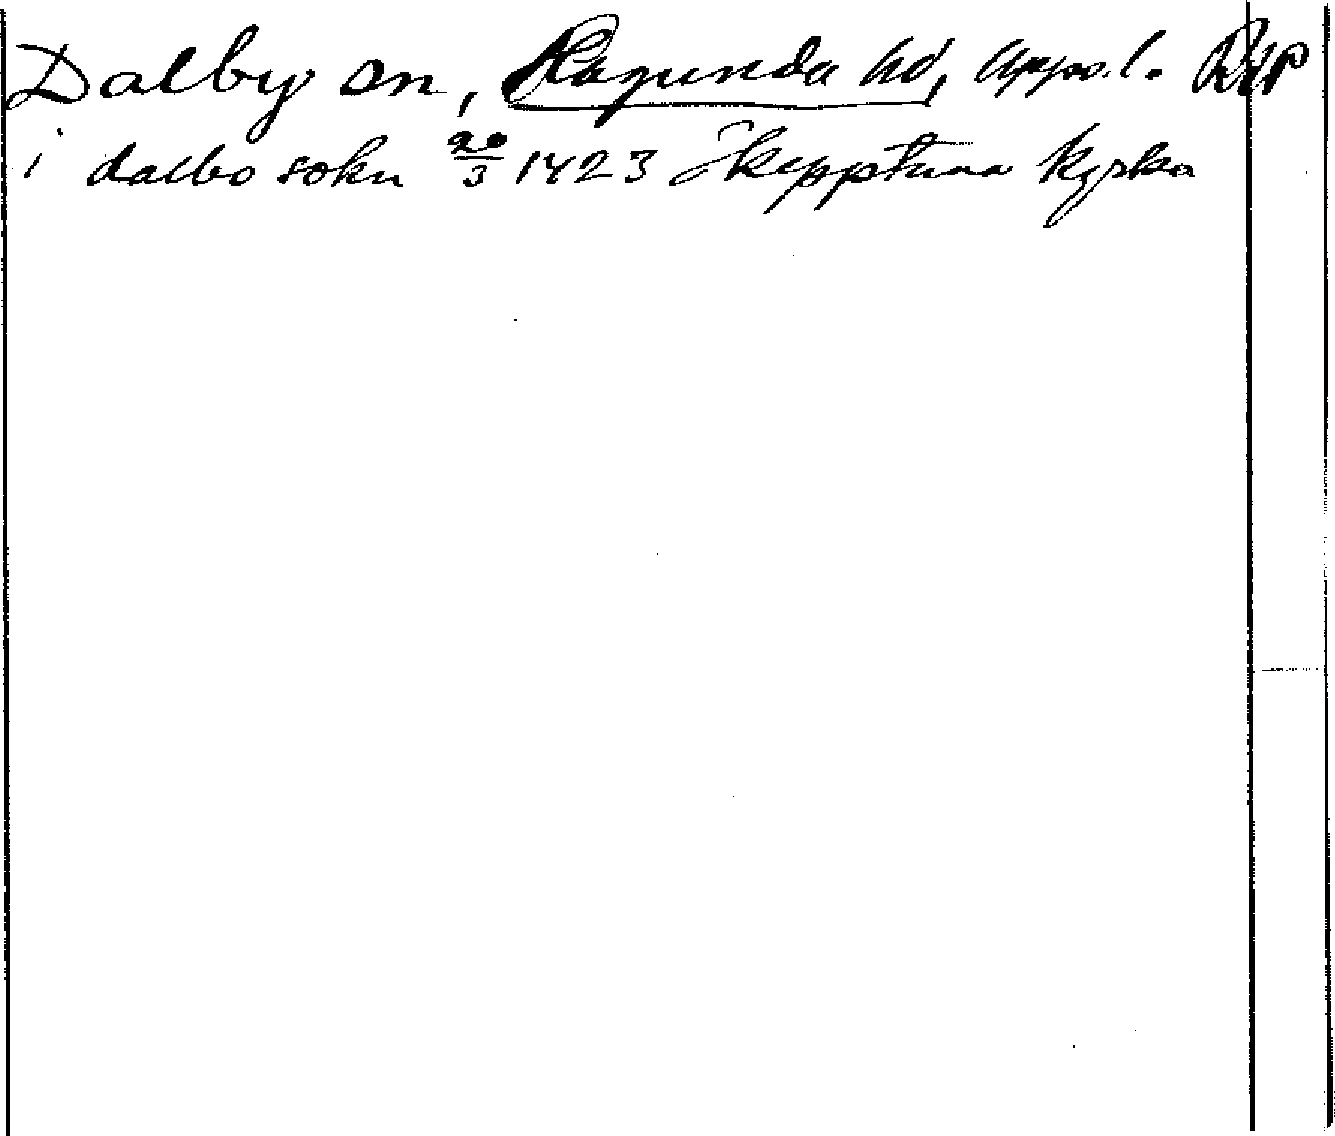 Dalby sn, Hagunda hd, Upps. l.
i dalbo sokn 20/3 1423 Skepptuna kyrka